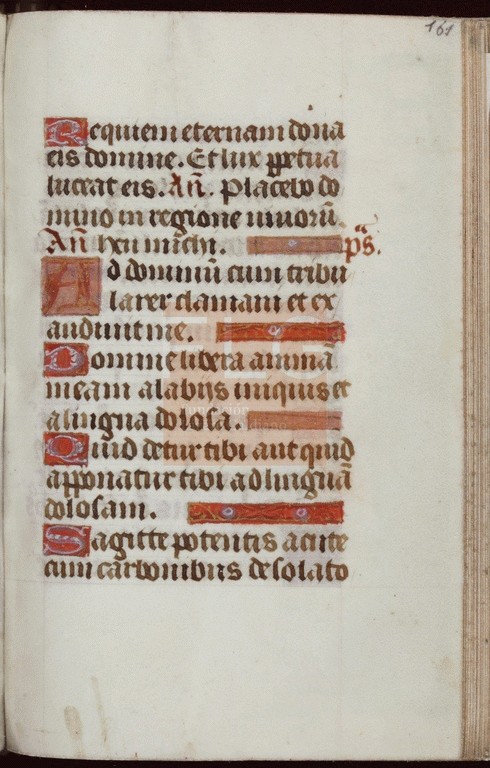 161
Requiem eternam dona
eis domine. Et lux ꝑpetua
luceat eis. Añ. Placebo do
mino in regione uiuorū.
Añ. heu michi. pˢ.
Ad dominū cum tribu
larer clamaui et ex
audiuit me.
Domine libera animā
meam a labijs iniquis et
a lingua dolosa.
Quid detur tibi aut quid
apponatur tibi ad linguā
dolosam.
Sagitte potentis acute
cum carbonibus desolato